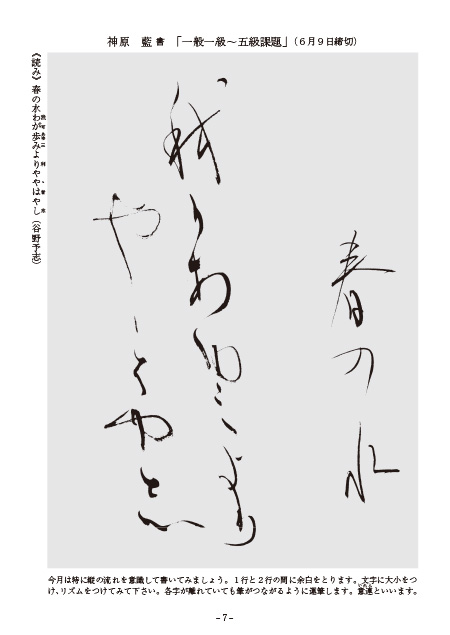 神原　藍 書 「一般一級～五級課題」（６月９日締切）
春の水
我可あゆミよ利
やゝ者や志
《読み》春の水わが歩みよりややはやし（谷野予志）
今月は特に縦の流れを意識して書いてみましょう。１行と２行の間に余白をとります。文字に大小をつ
け、リズムをつけてみて下さい。各字が離れていても筆がつながるように運筆します。意連といいます。
いれん
－７－